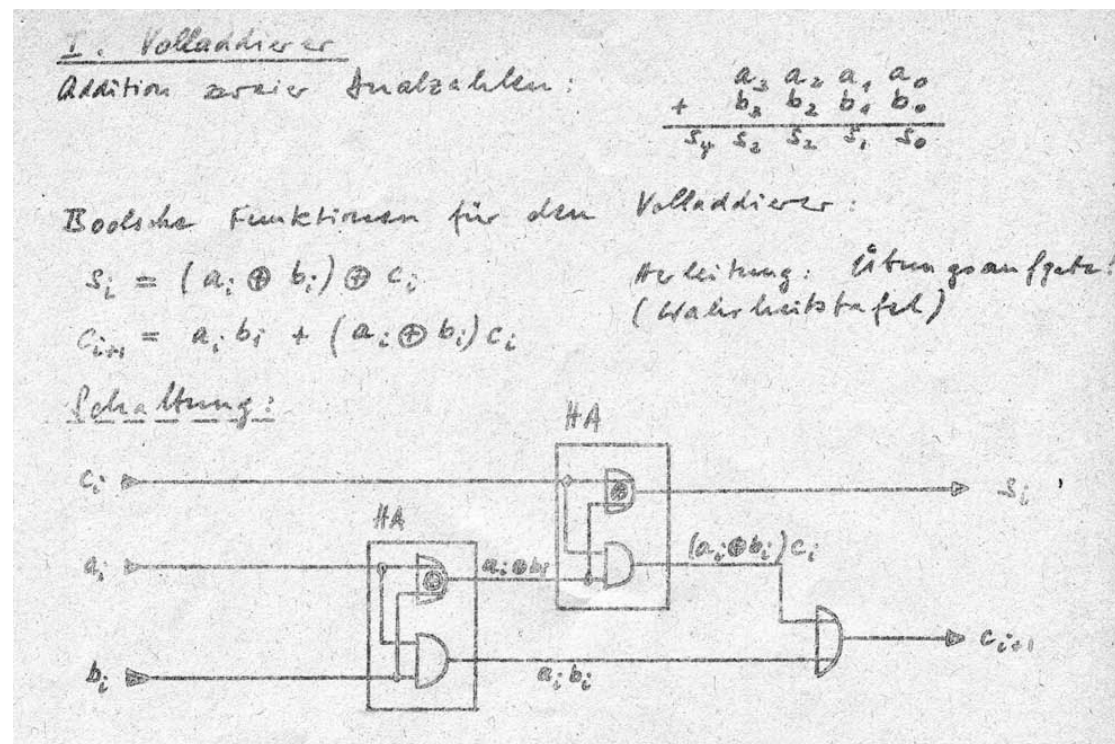 I. Volladdierer
Addition zweier Dualzahlen:
a₃ a₂ a₁ a₀
+ b₃ b₂ b₁ b₀
s₄ s₃ s₂ s₁ s₀
Boolsche Funktionen für den Volladdierer:
sᵢ = (aᵢ ⊕ bᵢ) ⊕ cᵢ
Herleitung: Übungsaufgabe
cᵢ₊₁ = aᵢbᵢ + (aᵢ ⊕ bᵢ)cᵢ
(Wahrheitstafel)
Schaltung:
HA
cᵢ
sᵢ
HA
aᵢ
aᵢ⊕bᵢ
(aᵢ⊕bᵢ)cᵢ
cᵢ₊₁
bᵢ
aᵢbᵢ